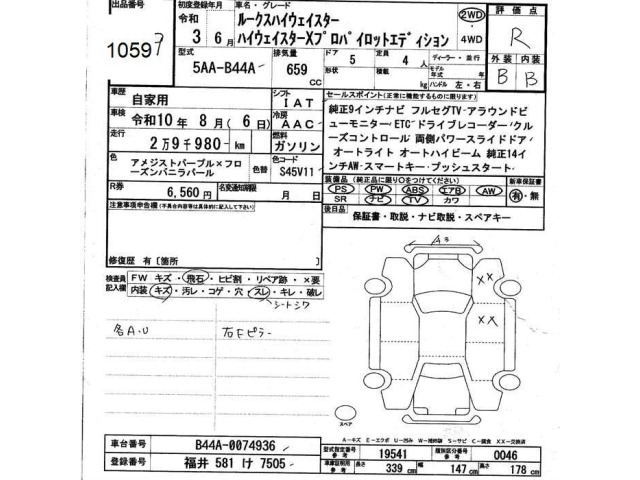 出品番号
10597
初度登録年月
令和
3 6月
車名・グレード
ルークスハイウェイスター
ハイウェイスターXプロパイロットエディション
2WD
4WD
評価点
R
型式
5AA-B44A
排気量
659
CC
ドア
5
定員
4 人
積載
kg
ディーラー・並行
モデル年式
年
ハンドル 左・右
外装
内装
B
B
車歴
自家用
シフト
IAT
セールスポイント(正常に機能するものに限ります)
純正9インチナビ フルセグTV アラウンドビ
ューモニター/ETC ドライブレコーダー クル
ーズコントロール 両側パワースライドドア
オートライト オートハイビーム 純正14イ
ンチAW スマートキー プッシュスタート
車検
令和10年 8月 ( 6日)
冷房
AAC
走行
2万9千980 km
燃料
ガソリン
色
アメジストパープル×フロ
ーズンバニラパール
色替
色コード
S45V11
装備品 (純正品に限り○をつけてください)
PS PW ABS エアB AW
SR ナビ TV カワ
新車保証書
有・無
R券
6,560 円
名変通知期限
月 日
後日品
保証書・取説・ナビ取説・スペアキー
注意事項申告欄(不具合内容等は具体的に記入して下さい)
修復歴 有〔箇所 〕
検査員記入欄
FW キズ・飛石・ヒビ割・リペア跡・×要
内装 キズ・汚レ・コゲ・穴・スレ・キレ・破レ
シートシワ
各A.U
右Fピラー
A3
XX
XX
スペア
A－キズ E－エクボ U－凹み W－補修跡 S－サビ C－腐食 XX－交換済
車台番号
B44A-0074936
登録番号
福井 581 け 7505
型式指定番号
参考
19541
類別区分番号
参考
0046
車庫証明用
参考
長さ
339 cm
幅
147 cm
高さ
178 cm